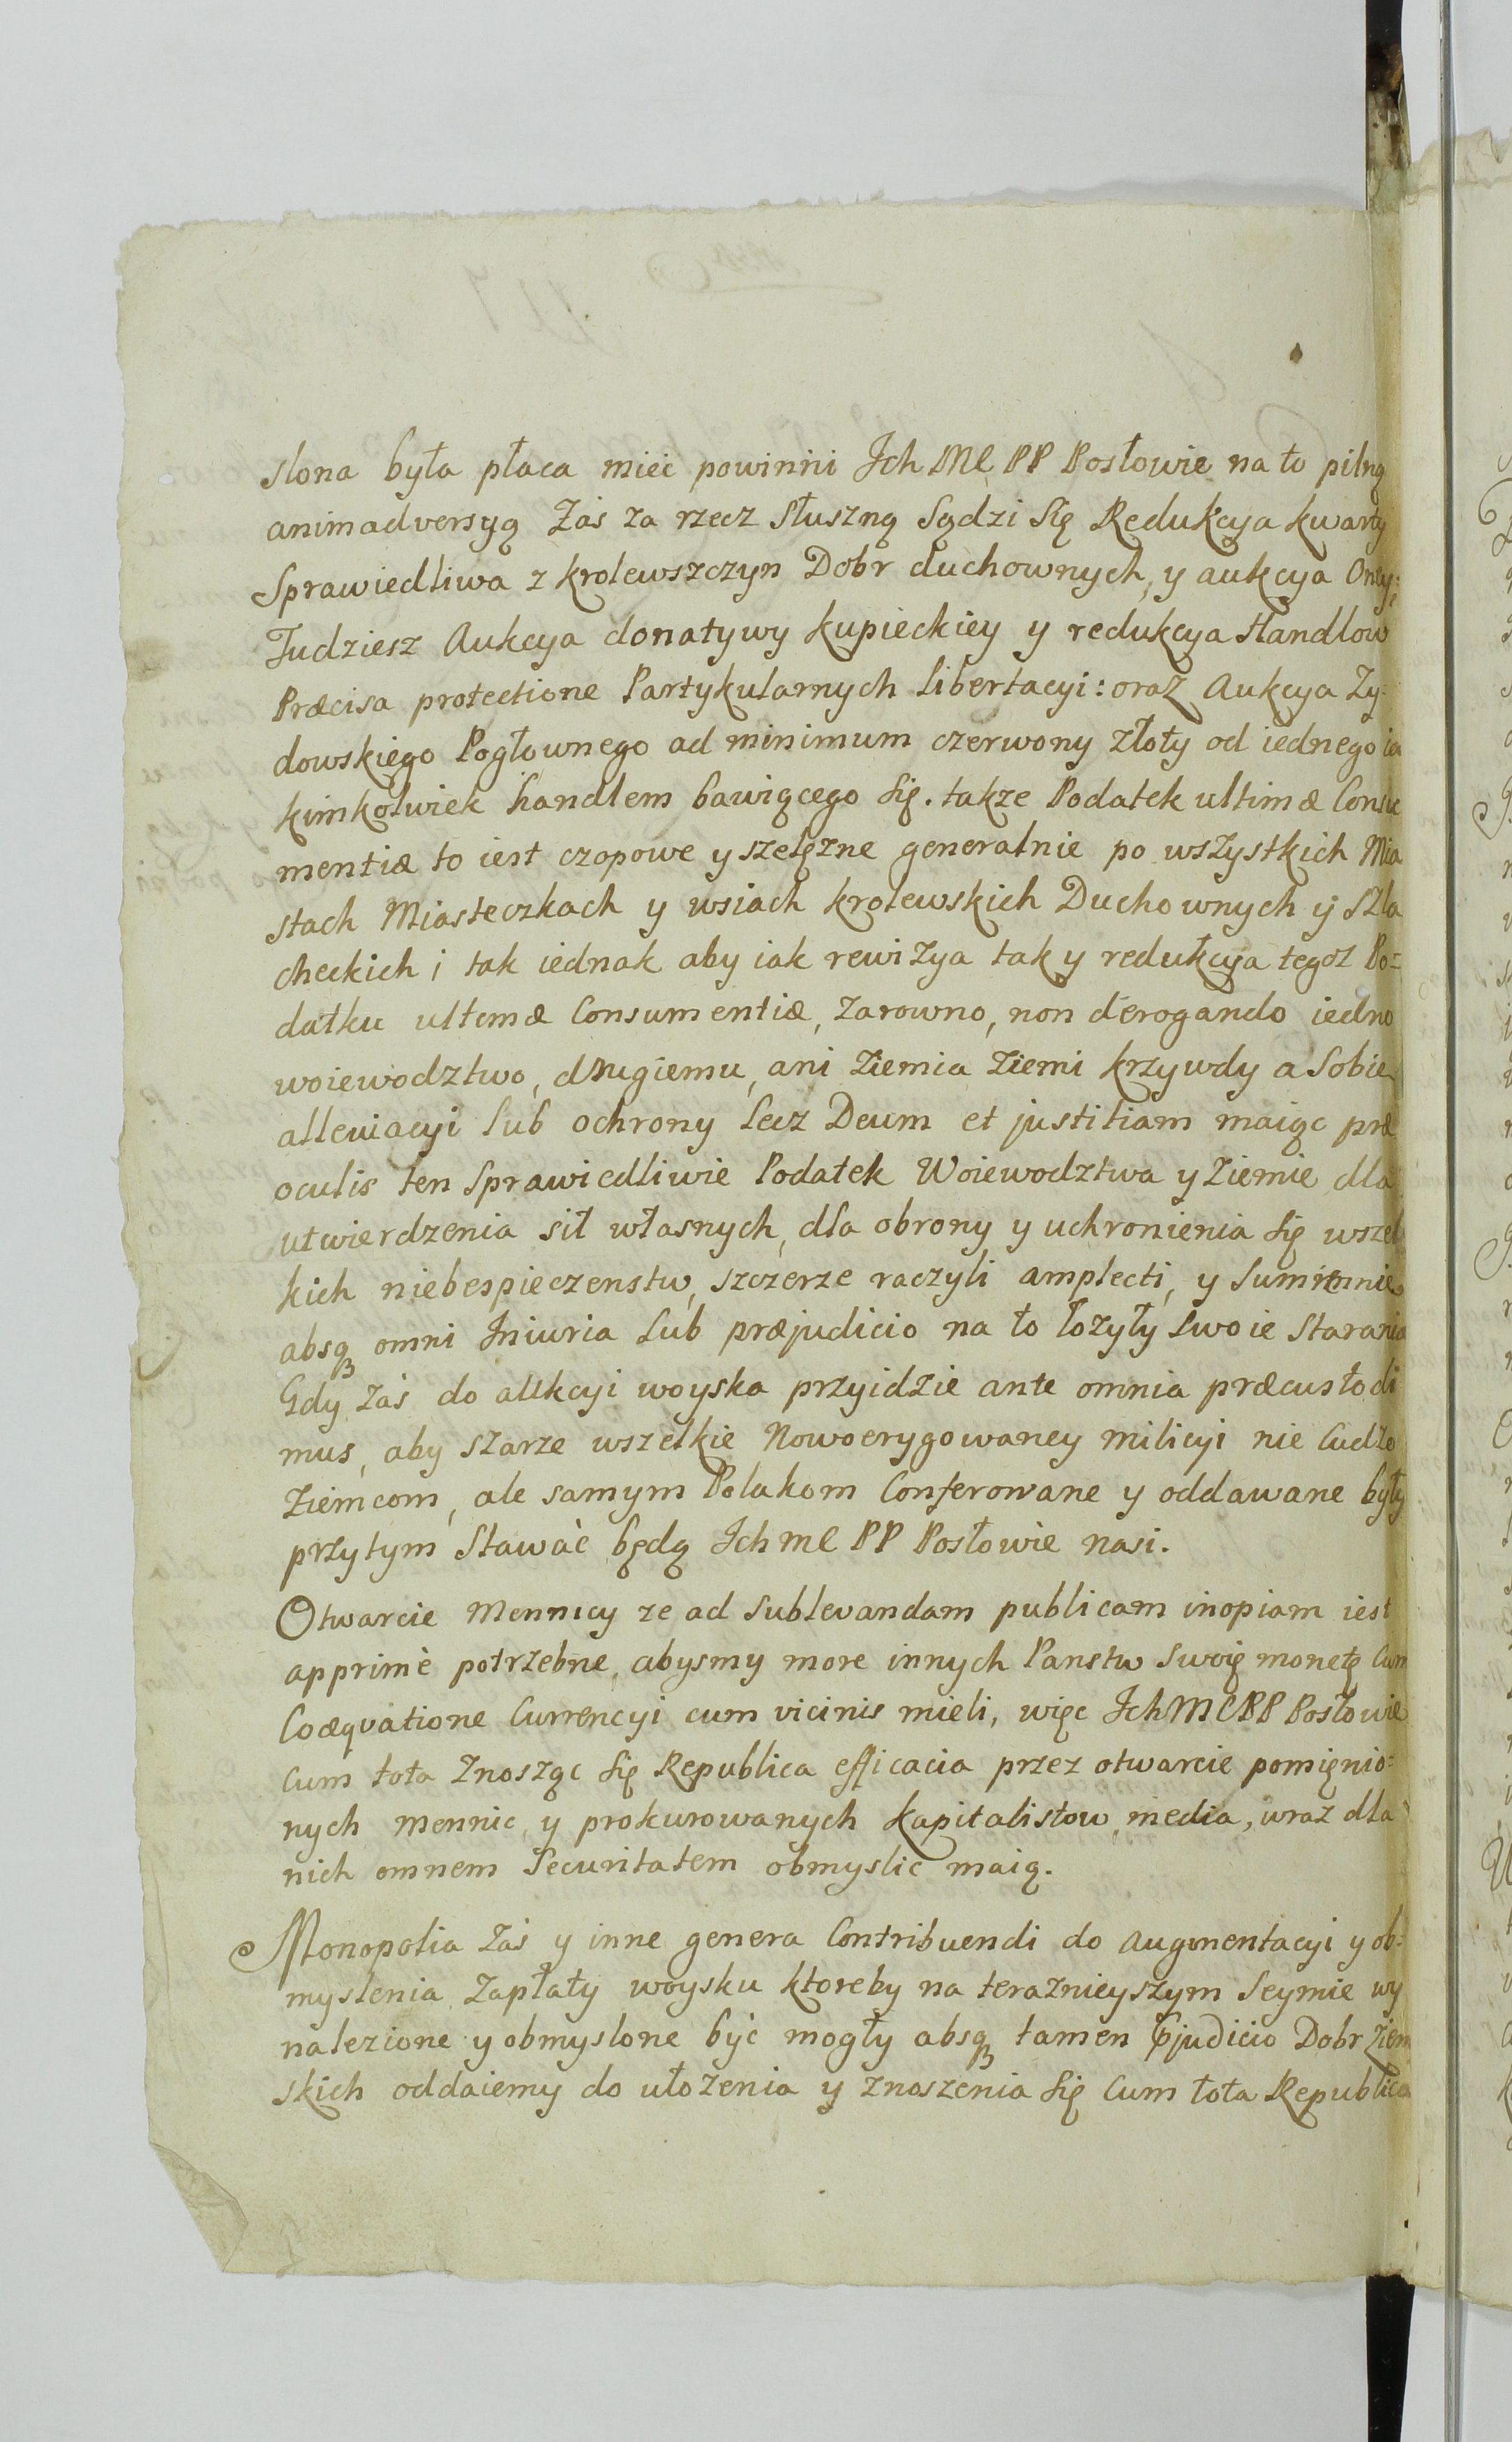 slona była płaca mieć powinni Ich MC PP Posłowie na to pilną
animadversyą Zaś za rzecz Słuszną Sądzi Się Redukcya kwarty
Sprawiedliwa z krolewszczyn Dobr duchownych, y aukcya Oney:
Tudziesz Aukcya donatywy kupieckiey y redukcya Handlow
Præcisa protectione Partykularnych libertacyi: oraz Aukcya Zy=
dowskiego Pogłownego ad minimum czerwony złoty od iednego ia
kimkolwiek handlem bawiącego Się. takze Podatek ultimæ Consu
mentiæ to iest czopowe y szelęzne generalnie po wszystkich Mia
stach Miasteczkach y wsiach krolewskich Duchownych y Szla
checkich i tak iednak aby iak rewizya tak y redukcya tegoz Po=
datku ultemæ Consumentiæ, zarowno, non derogando iedno
woiewodztwo, drugiemu, ani Ziemia Ziemi krzywdy a Sobie
alleviacyi lub ochrony lecz Deum et justitiam maiąc præ
oculis ten Sprawiedliwie Podatek Woiewodztwa y Ziemie dla
utwierdzenia sił własnych, dla obrony y uchronienia Się wszel
kich niebespieczenstw, szczerze raczyli amplecti, y Sumiennie
absq₃ omni Iniuria lub præjudicio na to łozyły Swoie Starania
Gdy zaś do aukcyi woyska przyidzie ante omnia præcustodi
mus, aby szarze wszelkie Nowoerygowaney milicyi nie Cudzo
Ziemcom, ale samym Polakom Conferowane y oddawane były
przytym Stawać będą Ich mc PP Posłowie nasi.
Otwarcie Mennicy ze ad Sublevandam publicam inopiam iest
apprimè potrzebne, abysmy more innych Panstw Swoię monetę Cum
Coæqvatione Currencyi cum vicinis mieli, więc Ich MC PP Posłowie
Cum tota Znosząc Się Republica efficacia przez otwarcie pomienio=
nych Mennic, y prokurowanych kapitalistow, media, wraz dla
nich omnem Securitatem obmyslic maią.
Monopolia Zaś y inne genera Contribuendi do Augmentacyi y ob=
myslenia Zapłaty woysku ktoreby na teraznieyszym Seymie wy
nalezione y obmyslone być mogły absq₃ tamen ꝑjudicio Dobr Ziem
skich oddaiemy do ułozenia y znoszenia Się Cum tota Republica